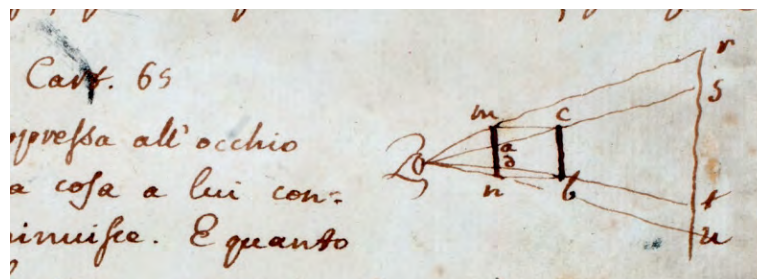 Cart. 65
ppreſsa all'occhio
a coſa a lui con=
inuiſce. E quanto
m c r
s
a
d
n b t
u